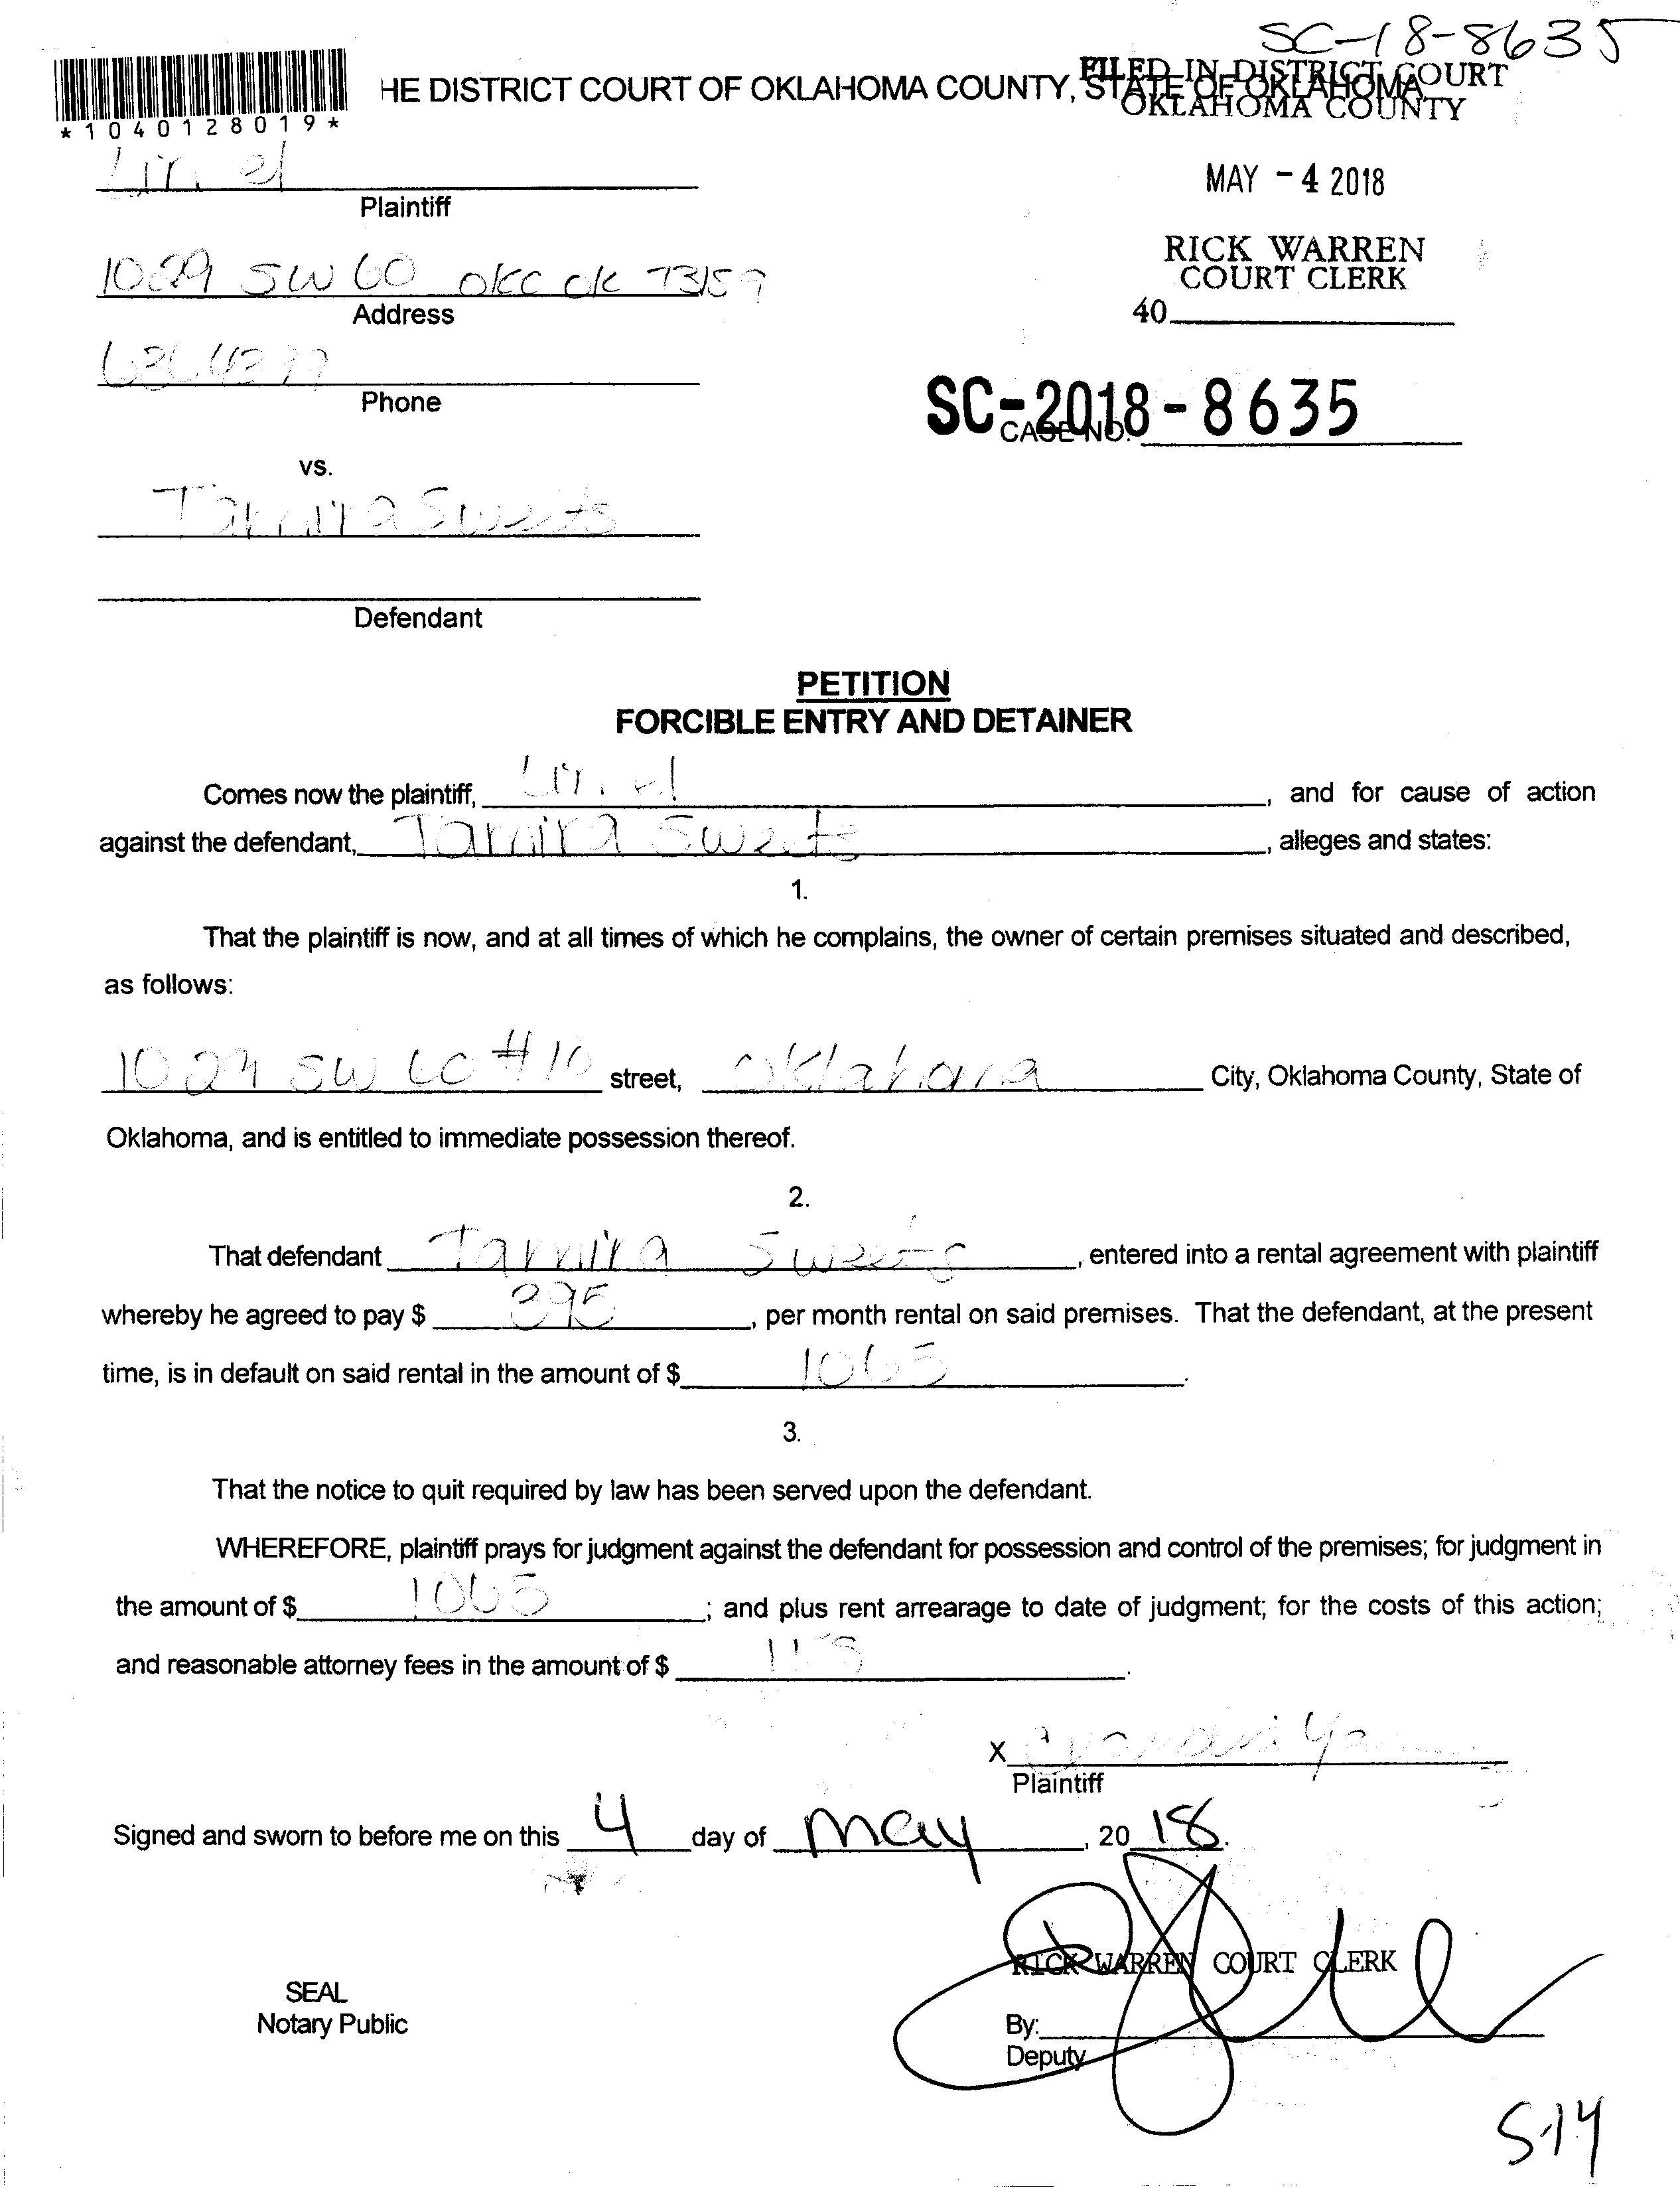 SC-18-8635
HE DISTRICT COURT OF OKLAHOMA COUNTY, STATE OF OKLAHOMA
FILED IN DISTRICT COURT
OKLAHOMA COUNTY
*1040128019*
Plaintiff
MAY -4 2018
RICK WARREN
COURT CLERK
40
1029 SW 60 OKC OK 73159
Address
Phone
SC-2018-8635
CASE NO.
vs.
Tamira Sweets
Defendant
PETITION
FORCIBLE ENTRY AND DETAINER
Comes now the plaintiff, , and for cause of action
against the defendant, Tamira Sweets, alleges and states:
1.
That the plaintiff is now, and at all times of which he complains, the owner of certain premises situated and described,
as follows:
1029 SW 60 #10 street, Oklahoma City, Oklahoma County, State of
Oklahoma, and is entitled to immediate possession thereof.
2.
That defendant Tamira Sweets, entered into a rental agreement with plaintiff
whereby he agreed to pay $ 395, per month rental on said premises. That the defendant, at the present
time, is in default on said rental in the amount of $ 1065.
3.
That the notice to quit required by law has been served upon the defendant.
WHEREFORE, plaintiff prays for judgment against the defendant for possession and control of the premises; for judgment in
the amount of $ 1065; and plus rent arrearage to date of judgment; for the costs of this action;
and reasonable attorney fees in the amount of $ .
X
Plaintiff
Signed and sworn to before me on this 4 day of May, 2018.
RICK WARREN COURT CLERK
SEAL
Notary Public
By:
Deputy
5-14